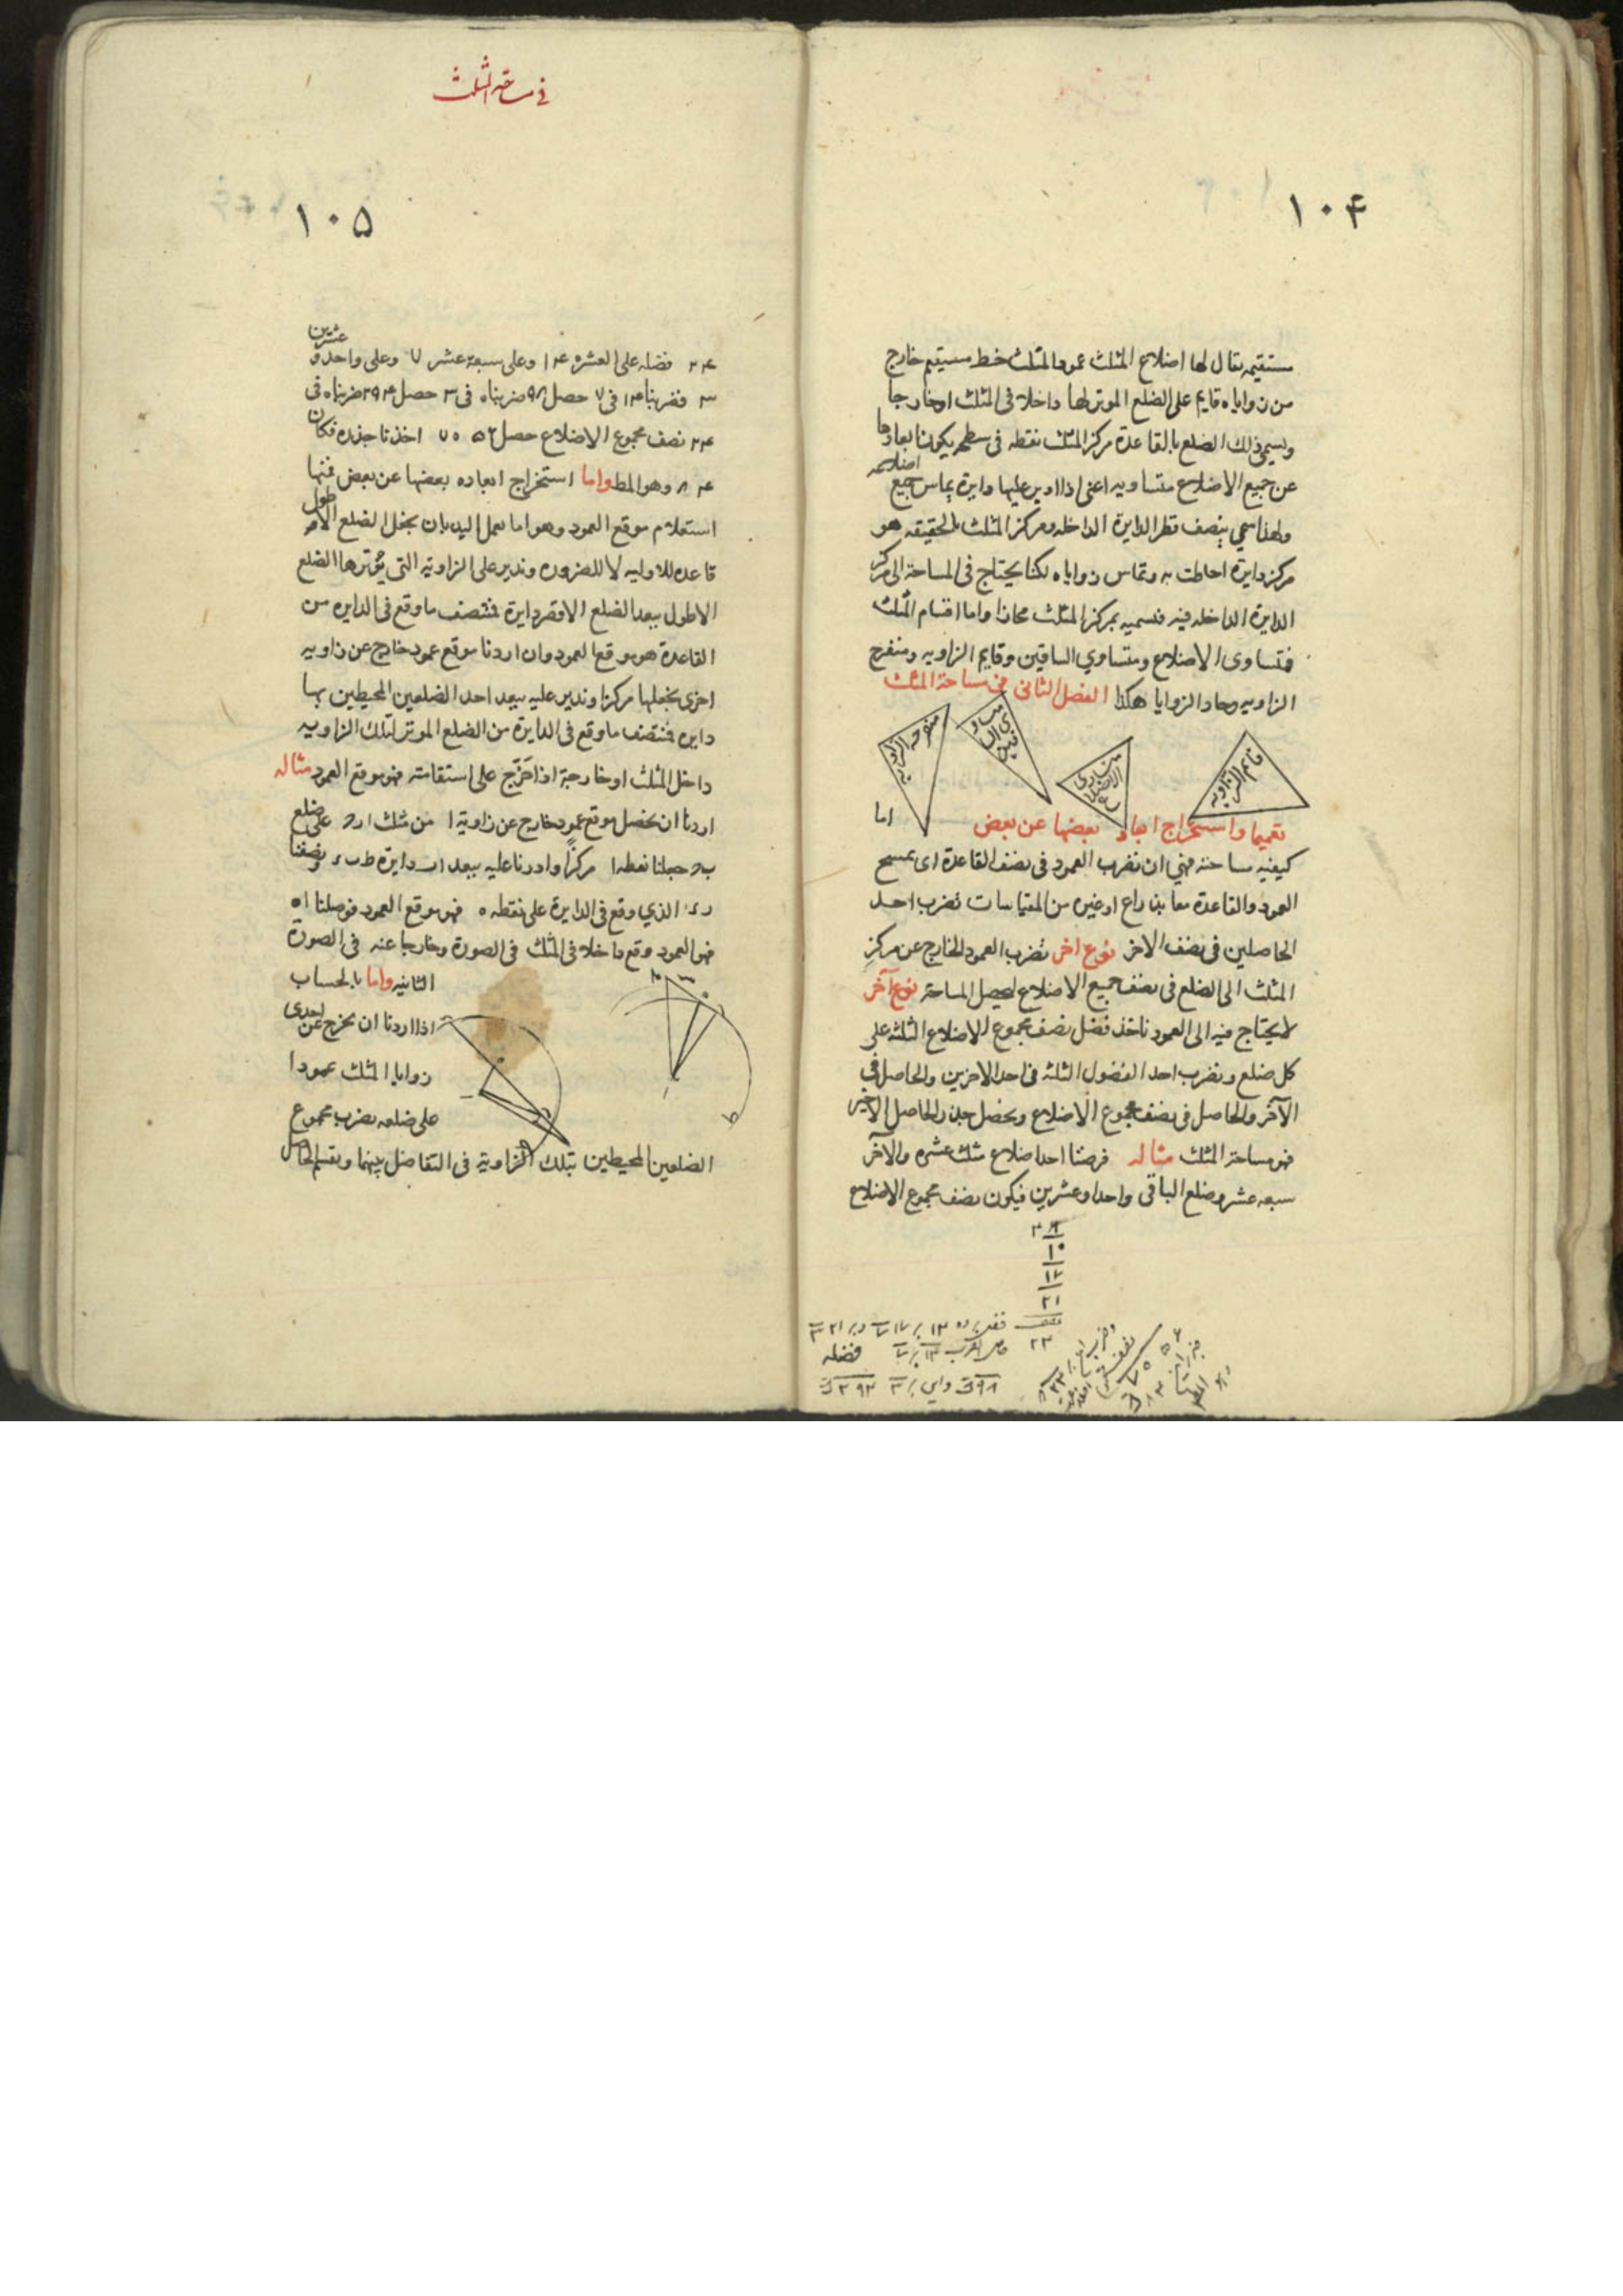 ١٠۴
مستقيمه يقال لها اضلاع المثلث عمود المثلث خط مستقيم خارج
من زواياه قايم على الضلع الموتر لها داخلا فى المثلث او خارجا
ويسمى ذلك الضلع بالقاعدة مركز المثلث نقطه فى سطحه يكون ابعادها
عن جميع الاضلاع متساويه اعنى اذا ادير عليها دايرة يماس جميع اضلاعه
ولهذا سمي بنصف قطر الدايرة الداخله ومركز المثلث بالحقيقه هو
مركز دايرة احاطت به وتماس زواياه لكنا يحتاج فى المساحة الى مركز
الدايرة الداخله فيه فنسميه بمركز المثلث مجازا واما اقسام المثلث
فمتساوى الاضلاع ومتساوي الساقين وقايم الزاويه ومنفرج
الزاويه وحاد الزوايا هكذا الفصل الثانى فى مساحة المثلث
قائم الزاويه
متساوى الاضلاع
متساوى الساقين
منفرجه الزاويه
تعميما واستخراج ابعاد بعضها عن بعض
اما
كيفيه مساحته فهي ان نضرب العمود فى نصف القاعدة اى نمسح
العمود والقاعدة معا بذراع او غيره من المقياسات نضرب احد
الحاصلين فى نصف الاخر نوع اخر نضرب العمود الخارج عن مركز
المثلث الى الضلع فى نصف جميع الاضلاع ليحصل المساحة نوع آخر
لا يحتاج فيه الى العمود ناخذ فضل نصف مجموع الاضلاع الثلثه على
كل ضلع ونضرب احد الفضول الثلثه فى احد الاخرين والحاصل فى
الآخر والحاصل فى نصف مجموع الاضلاع ونحصل جذر الحاصل الاخير
فهو مساحة المثلث مثاله فرضنا احد اضلاع مثلث عشره والآخر
سبعه عشر وضلع الباقى واحدا وعشرين فيكون نصف مجموع الاضلاع
فى مساحة المثلث
١٠۵
٢۴ فضله على العشره ١۴ وعلى سبعة عشر ٧ وعلى واحد و عشرين
٣ فضربنا ١۴ فى ٧ حصل ٩٨ ضربناه فى ٣ حصل ٢٩۴ ضربناه فى
٢۴ نصف مجموع الاضلاع حصل ٧٠۵٦ اخذنا جذره فكان
٨۴ وهو المط واما استخراج ابعاده بعضها عن بعض فمنها
استعلام موقع العمود وهو اما بعمل اليد بان نجعل الضلع الاطول
قاعده للاوليه لا للضروره وندير على الزاوية التى يوترها الضلع
الاطول ببعد الضلع الاقصر دايرة فمنتصف ما وقع فى الدايره من
القاعدة هو موقع العمود وان اردنا موقع عمود خارج عن زاويه
اخرى نجعلها مركزا وندير عليه ببعد احد الضلعين المحيطين بها
دايره فمنتصف ما وقع فى الدايرة من الضلع الموتر لتلك الزاويه
داخل المثلث او خارجه اذا اخرج على استقامته فهو موقع العمود مثاله
اردنا ان نحصل موقع عمود خارج عن زاوية ا من مثلث ا ب ح على ضلع
ب ح جعلنا نقطه ا مركزا وادرنا عليه ببعد ا ب دايرة ط ب ء ونصفنا
ب ء الذي وقع فى الدايرة على نقطه ه فهو موقع العمود فوصلنا ا ه
فهو العمود وقع داخلا فى المثلث فى الصورة وخارجا عنه فى الصورة
الثانيه واما بالحساب
اذا اردنا ان نخرج عن احدى
زوايا المثلث عمودا
على ضلعه نضرب مجموع
الضلعين المحيطين بتلك الزاوية فى التفاضل بينهما ونقسم الحاصل